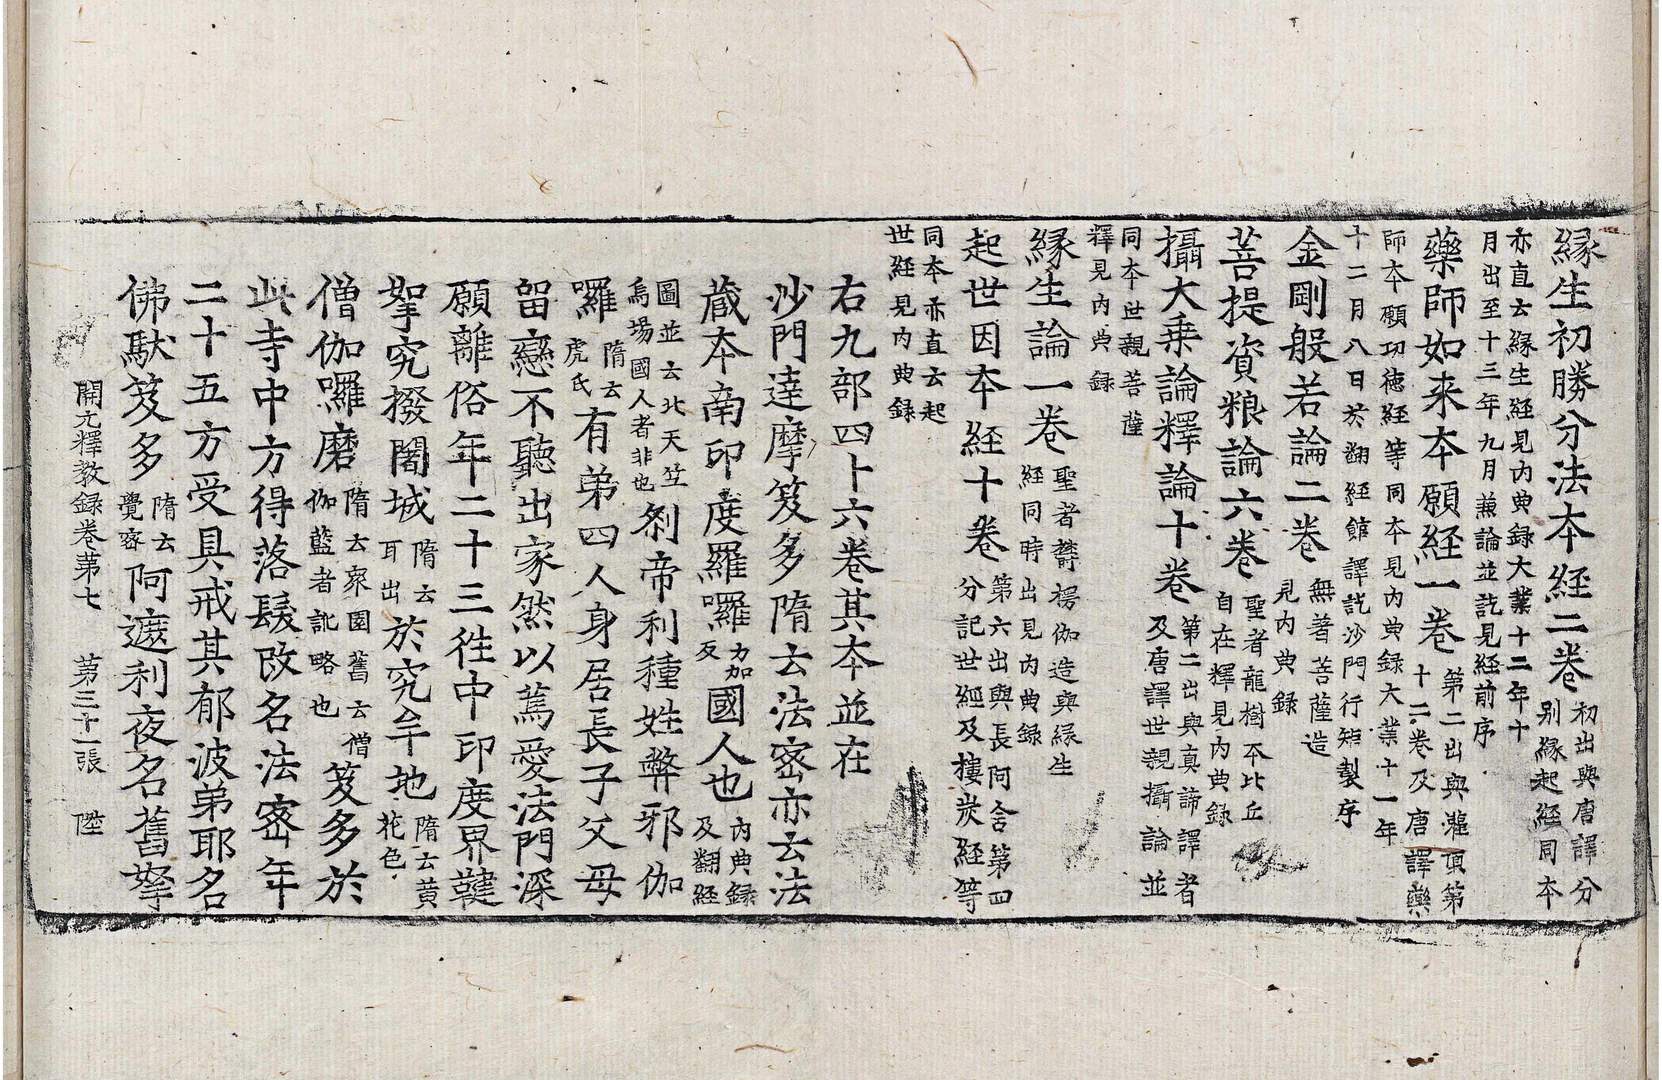 縁生初勝分法本經二卷初出與唐譯分別縁起經同本
亦直云縁生經見內典録大業十二年十月出至十三年九月兼論並訖見經前序
藥師如来本願經一卷第二出與灌頂第十二卷及唐譯藥
師本願功徳經等同本見內典録大業十一年十二月八日於翻經館譯訖沙門行矩製序
金剛般若論二卷無著菩薩造見內典録
菩提資粮論六卷聖者龍樹本比丘自在釋見內典録
攝大乗論釋論十卷第二出與真諦譯者及唐譯世親攝論並
同本世親菩薩釋見內典録
縁生論一卷聖者欝楞伽造與縁生經同時出見內典録
起世因本經十卷第六出與長阿含第四分記世經及樓炭經等
同本亦直云起世經見內典録
右九部四十六卷其本並在
沙門達摩笈多隋云法密亦云法
藏本南印度羅囉力加反國人也內典録及翻經
圖並云北天竺烏場國人者非也剎帝利種姓弊邪伽
囉隋云虎氏有弟四人身居長子父母
留戀不聽出家然以篤愛法門深
願離俗年二十三往中印度界鞬
拏究撥闍城隋云耳出於究牟地隋云黄花色
僧伽囉磨隋云衆園舊云僧伽藍者訛略也笈多於
此寺中方得落髮改名法密年
二十五方受具戒其郁波弟耶名
佛馱笈多隋云覺密阿遮利夜名舊拏
開元釋教録卷第七　第三十一張　陞